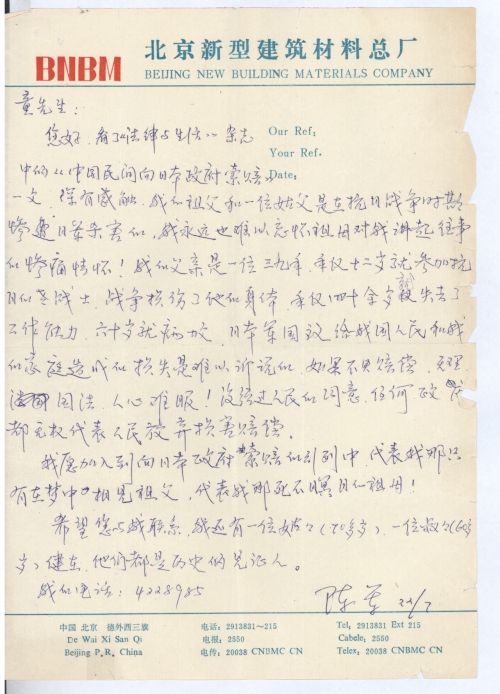 BNBM
北京新型建筑材料总厂
BEIJING NEW BUILDING MATERIALS COMPANY
童先生：
您好，看了《法律与生活》杂志
Our Ref:
Your Ref.
Date:
中的《中国民间向日本政府索赔》
一文，深有感触，我的祖父和一位姑父是在抗日战争时期
惨遭日军杀害的，我永远也难以忘怀祖母对我讲起往事
的惨痛情怀！我的父亲是一位三九年，年仅十二岁就参加抗
日的老战士，战争损伤了他的身体，年仅四十余岁就失去了
工作能力，六十岁就病故，日本军国政给我国人民和我
的家庭造成的损失是难以诉说的，如果不员赔偿，天理
国法，人心难服！没经过人民的同意，任何政
都无权代表人民放弃损害赔偿。
我愿加入到向日本政府索赔的引列中，代表我那只
有在梦中相见祖父，代表我那死不瞑目的祖母！
希望您与我联系，我还有一位姑姑（70多岁）一位叔叔（60多
岁）健在，他们都是历史的见证人。
我的电话：4228985
陈军 22/7
中国 北京 德外西三旗
De Wai Xi San Qi
Beijing P. R. China
电话：2913831～215
电报：2550
电传：20038 CNBMC CN
Tel: 2913831 Ext 215
Cabele: 2550
Telex: 20038 CNBMC CN